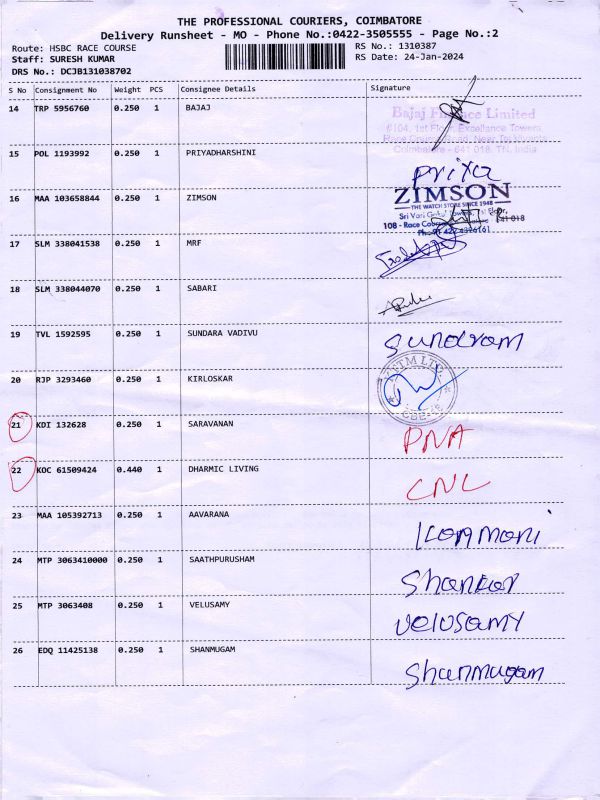 THE PROFESSIONAL COURIERS, COIMBATORE
Delivery Runsheet - MO - Phone No.:0422-3505555 - Page No.:2
Route: HSBC RACE COURSE RS No.: 1310387
Staff: SURESH KUMAR RS Date: 24-Jan-2024
DRS No.: DCJB131038702
S No Consignment No Weight PCS Consignee Details Signature
14 TRP 5956760 0.250 1 BAJAJ
Bajaj Finance Limited
#104, 1st Floor, Excellance Towers,
Coimbatore - 641 018. TN. India
15 POL 1193992 0.250 1 PRIYADHARSHINI
Priya
16 MAA 103658844 0.250 1 ZIMSON
ZIMSON
THE WATCH STORE SINCE 1948
17 SLM 338041538 0.250 1 MRF
18 SLM 338044070 0.250 1 SABARI
19 TVL 1592595 0.250 1 SUNDARA VADIVU
Sundram
20 RJP 3293460 0.250 1 KIRLOSKAR
21 KDI 132628 0.250 1 SARAVANAN PNA
22 KOC 61509424 0.440 1 DHARMIC LIVING CNL
23 MAA 105392713 0.250 1 AAVARANA
24 MTP 3063410000 0.250 1 SAATHPURUSHAM
Shankar
25 MTP 3063408 0.250 1 VELUSAMY
VELUSAMY
26 EDQ 11425138 0.250 1 SHANMUGAM
Shanmugam